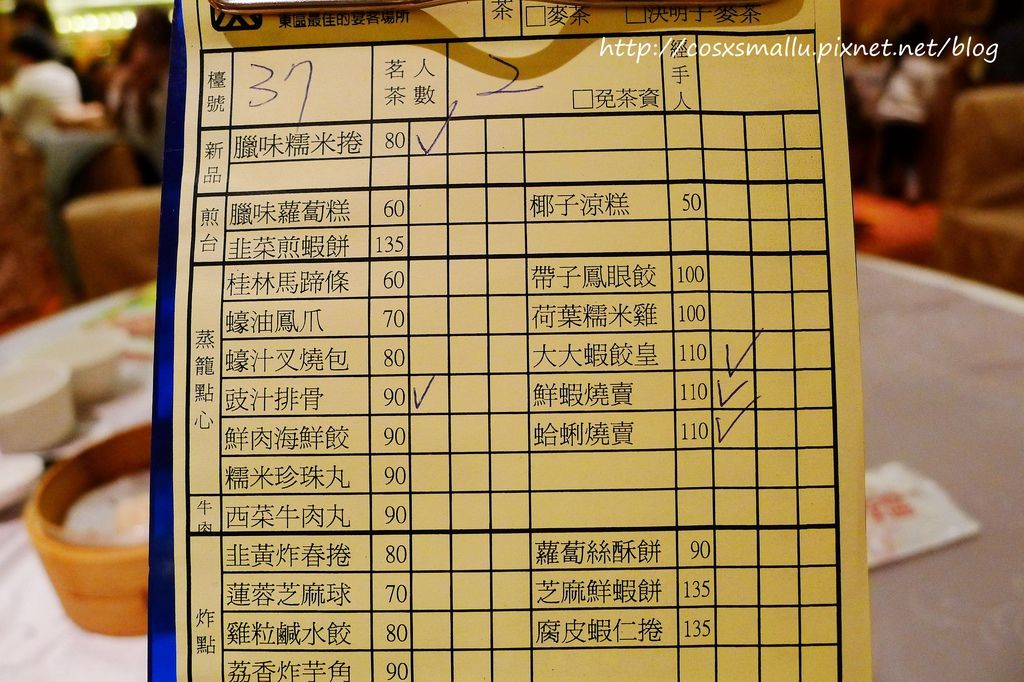 東區最佳的宴客場所
茶 □麥茶 □決明子麥茶
http://cosxsmallu.pixnet.net/blog
檯號 37 茗茶 人數 2 □免茶資 經手人
新品
臘味糯米捲 80 ✓
煎台
臘味蘿蔔糕 60 椰子涼糕 50
韭菜煎蝦餅 135
蒸籠點心
桂林馬蹄條 60 帶子鳳眼餃 100
蠔油鳳爪 70 荷葉糯米雞 100
蠔汁叉燒包 80 大大蝦餃皇 110 ✓
豉汁排骨 90 ✓ 鮮蝦燒賣 110 ✓
鮮肉海鮮餃 90 蛤蜊燒賣 110 ✓
糯米珍珠丸 90
牛肉
西菜牛肉丸 90
炸點
韭黃炸春捲 80 蘿蔔絲酥餅 90
蓮蓉芝麻球 70 芝麻鮮蝦餅 135
雞粒鹹水餃 80 腐皮蝦仁捲 135
荔香炸芋角 90